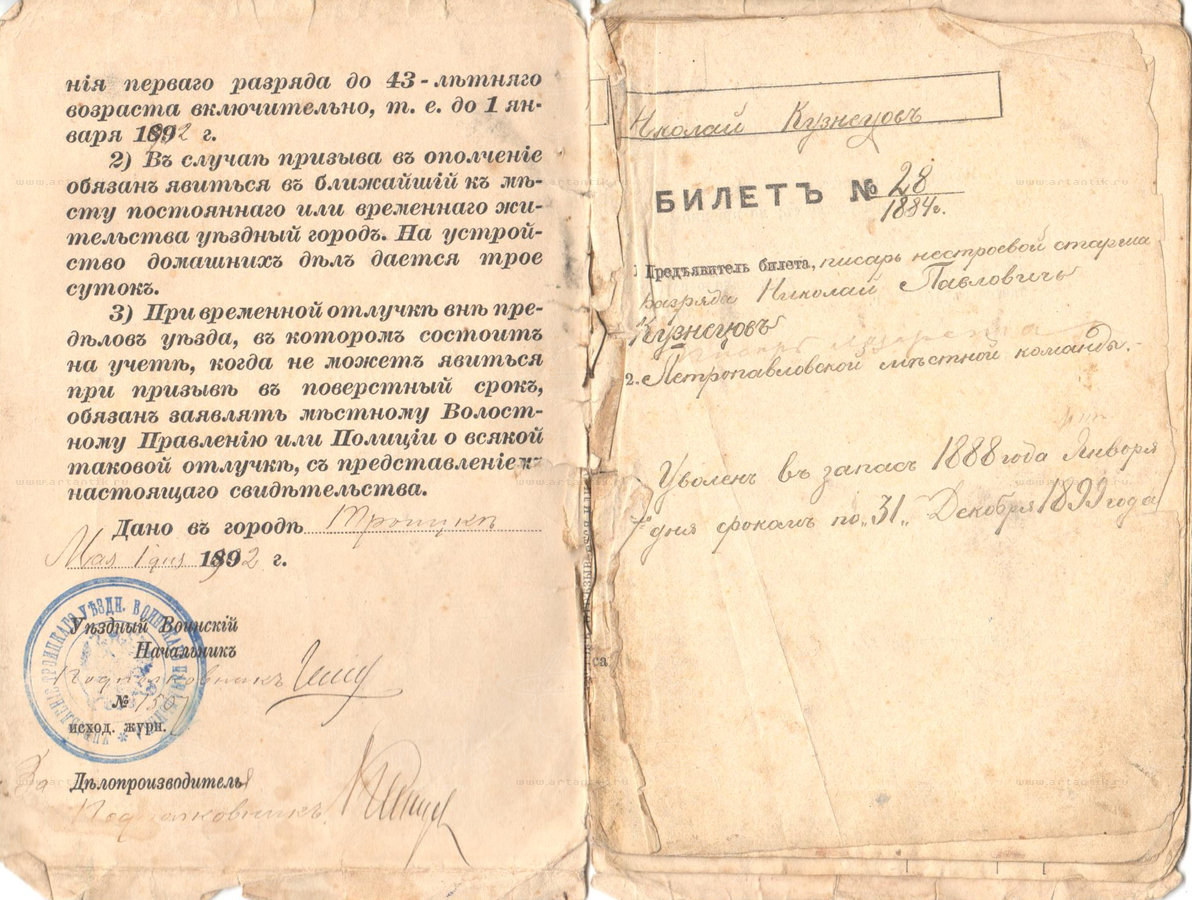 нія перваго разряда до 43-лѣтняго
возраста включительно, т. е. до 1 ян-
варя 1892 г.
2) Въ случаѣ призыва въ ополченіе
обязанъ явиться въ ближайшій къ мѣ-
сту постояннаго или временнаго жи-
тельства уѣздный городъ. На устрой-
ство домашнихъ дѣлъ дается трое
сутокъ.
3) При временной отлучкѣ внѣ пре-
дѣловъ уѣзда, въ которомъ состоитъ
на учетѣ, когда не можетъ явиться
при призывѣ въ поверстный срокъ,
обязанъ заявлять мѣстному Волост-
ному Правленію или Полиціи о всякой
таковой отлучкѣ, съ представленіемъ
настоящаго свидѣтельства.
Дано въ городѣ Троицкѣ
Мая 1 дня 1892 г.
Уѣздный Воинскій
Начальникъ
Подполковникъ
№
исход. журн.
За Дѣлопроизводителя
Подполковникъ
Николай Кузнецовъ
БИЛЕТЪ № 28/1884г.
1 Предъявитель билета, писарь нестроевой старша
разряда Николай Павловичъ
Кузнецовъ
2. Петропавловской мѣстной команды.
Уволенъ въ запасъ 1888 года Января
7го дня срокомъ по „31„ Декабря 1899 года
са